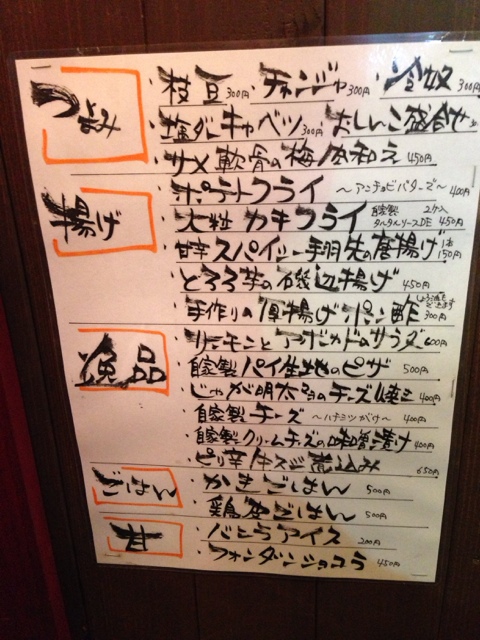 つまみ
・枝豆 300円 ・チャンジャ 300円 ・冷奴 300円
・塩ダレキャベツ 300円 ・おしんこ盛合せ
・サメ軟骨の梅肉和え 450円
揚げ
・ポテトフライ ～アンチョビバター～ 400円
・大粒カキフライ 自家製タルタルソースDE 2ケ入 450円
・甘辛スパイシー手羽先の唐揚げ 1本 150円
・とろろ芋の磯辺揚げ 450円
・手作りの厚揚げ ポン酢 300円
逸品
・サーモンとアボカドのサラダ 600円
・自家製パイ生地のピザ 500円
・じゃが明太のチーズ焼き 400円
・自家製チーズ ～ハチミツがけ～ 400円
・自家製クリームチーズの味噌漬け 400円
・ピリ辛牛スジ煮込み 650円
ごはん
・かまごはん 500円
・鶏釜ごはん 500円
甘
・バニラアイス 200円
・フォンダンショコラ 450円